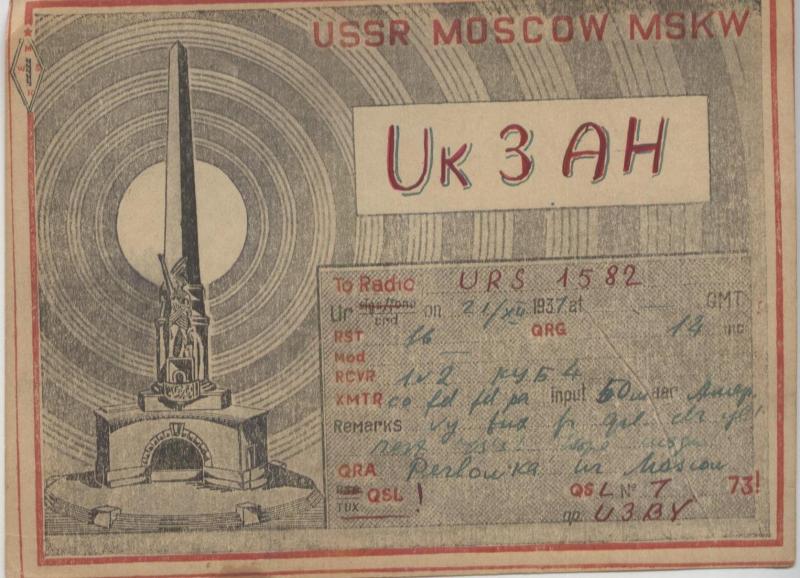 USSR MOSCOW MSKW
UK 3 AH
To Radio URS 1582
Ur sigs/fone crd on 21/XII 1937 at GMT
RST 16 QRG 14 mc
Mod —
RCVR 1v2 КУБ4
XMTR co fd fd pa input 50w aer
Remarks vy fr
QRA Perlowka nr Moscow
QSL! QSL № 7 73!
TUX op. U3BY